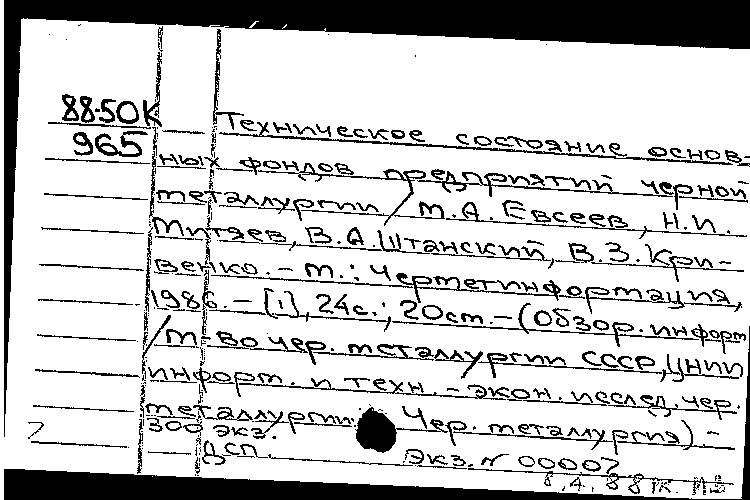 88-50К
965
Техническое состояние основ-
ных фондов предприятий черной
металлургии / М.А. Евсеев, Н.И.
Митяев, В.А. Штанский, В.З. Кри-
венко. – М.: Черметинформация,
1986. – [1], 24с.; 20см. – (Обзор. информ
/ М-во чер. металлургии СССР, ЦНИИ
информ. и техн.-экон. исслед. чер.
металлургии. Чер. металлургия). –
300 экз.
ДСП. Экз. N 00007
8.4.88г.